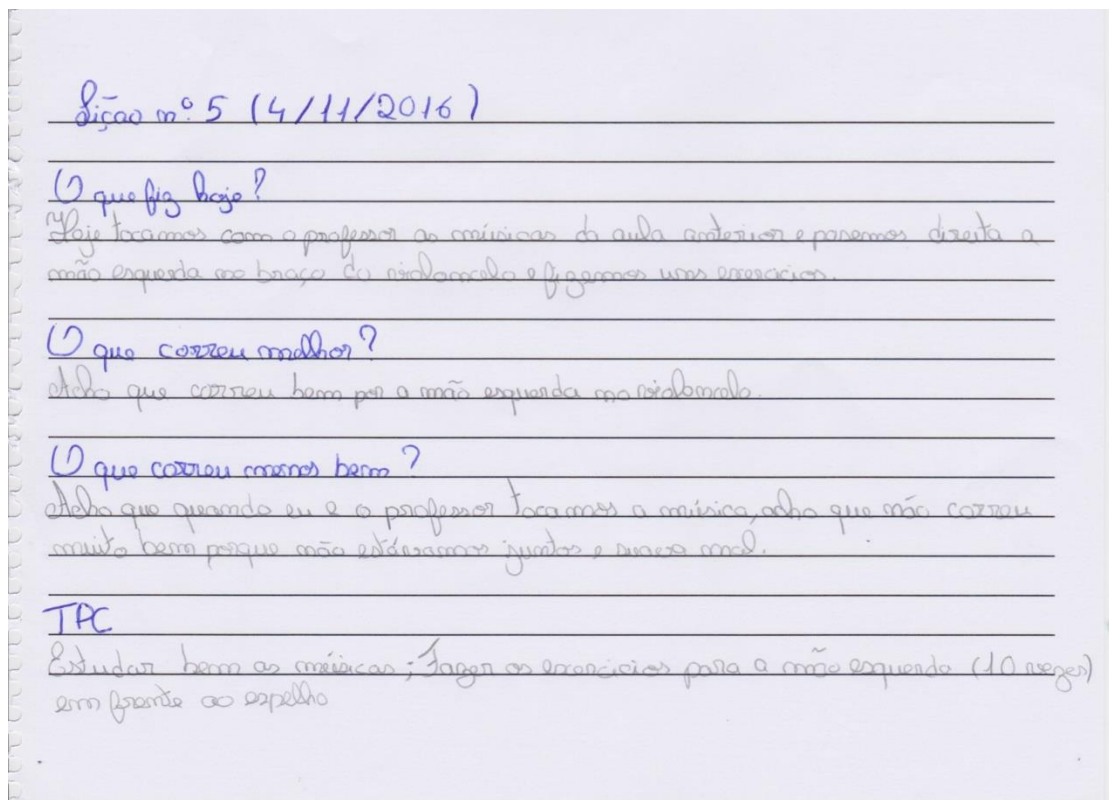 Lição nº 5 (4/11/2016)
O que fiz hoje?
Hoje tocámos com o professor as músicas da aula anterior e posemos direita a
mão esquerda no braço do violoncelo e fizemos uns exercicios.
O que correu melhor?
Acho que correu bem por a mão esquerda no violoncelo.
O que correu menos bem?
Acho que quando eu e o professor tocamos a música, acho que não correu
muito bem porque não estávamos juntos e mal.
TPC
Estudar bem as músicas; Fazer os exercicios para a mão esquerda (10 vezes)
em frente ao espelho